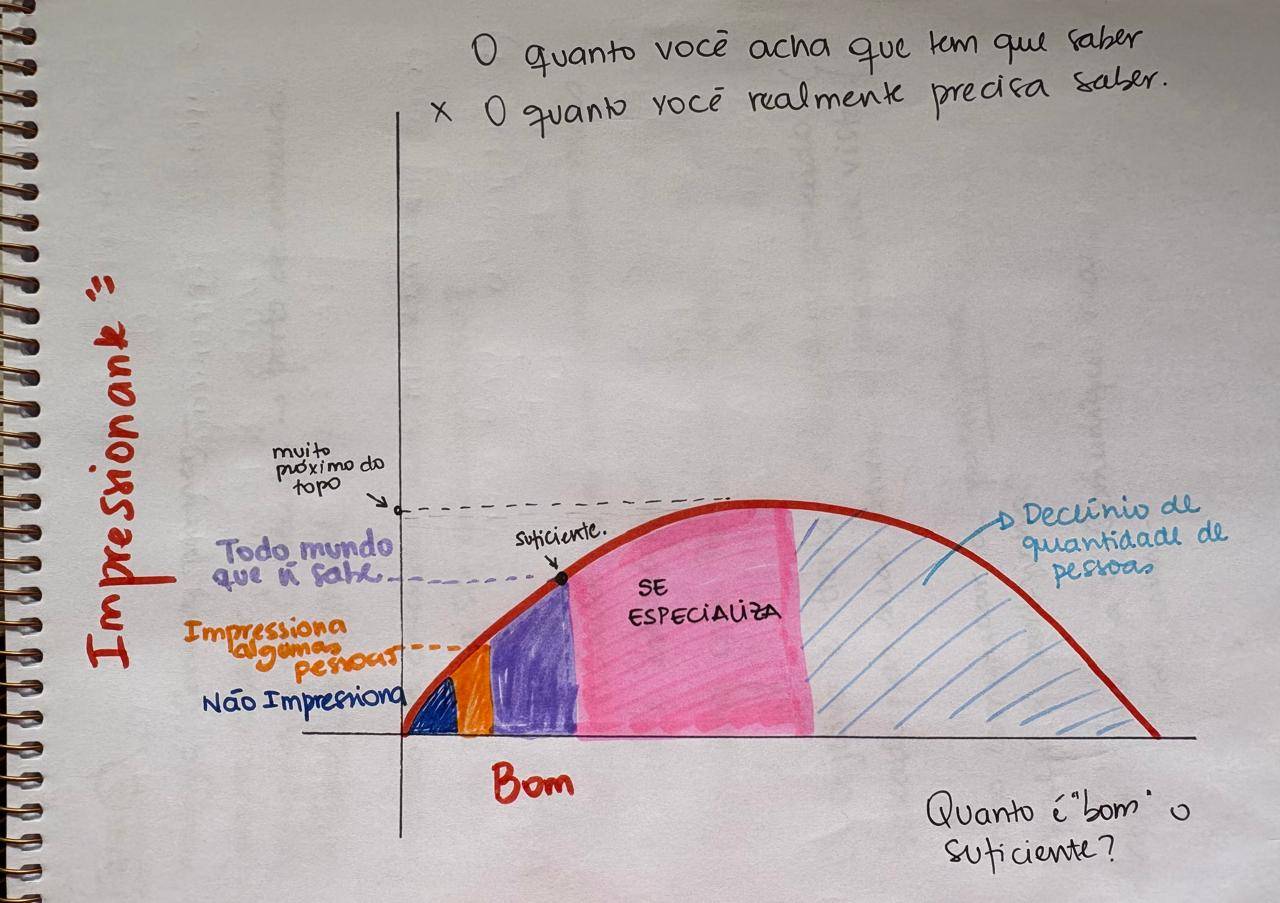 O quanto você acha que tem que saber
x O quanto você realmente precisa saber.
Impressionante
muito
próximo do
topo
suficiente.
Todo mundo
que já sabe
Impressiona
algumas
pessoas
Não Impressiona
SE
ESPECIALIZA
Declínio de
quantidade de
pessoas
Bom
Quanto é "bom" o
suficiente?